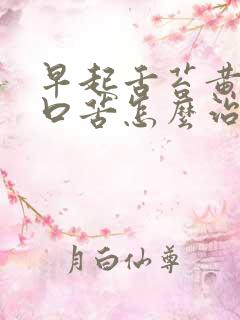 早起舌苔黄
口苦怎麼治
月白仙尊